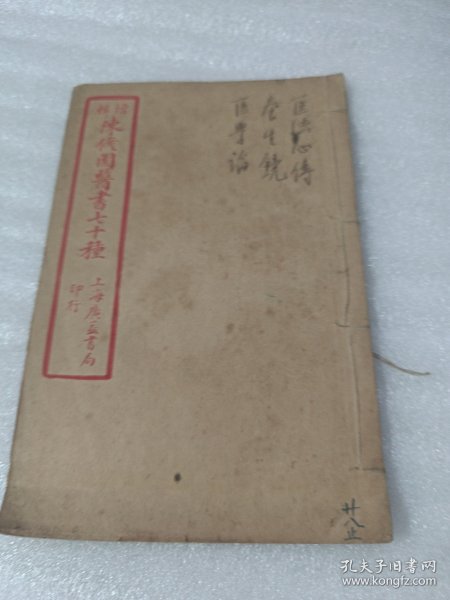 医法心傳
养生鏡
医学論
陳修園醫書七十種
上海廣益書局
印行
廿八止
孔夫子旧书网
www.kongfz.com